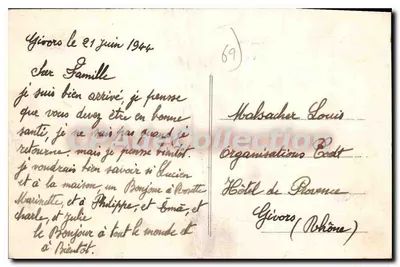 Givors le 21 juin 1944
Cher Famille
je suis bien arrivé, je pensse
que vous devez être en bonne
santé, je ne sais pas quand je
retourne, mais je pensse bientôt.
je voudrais bien savoir si Lucien
et à la maison, un Bonjour à Rosette
Marinette, et à Philippe, et Emā, et
Charle, et Julie
le Bonjour à tout le monde et
à Bientôt.
69
Malsacher Louis
Organisations Todt
Hôtel de Provence
Givors
(Rhône)